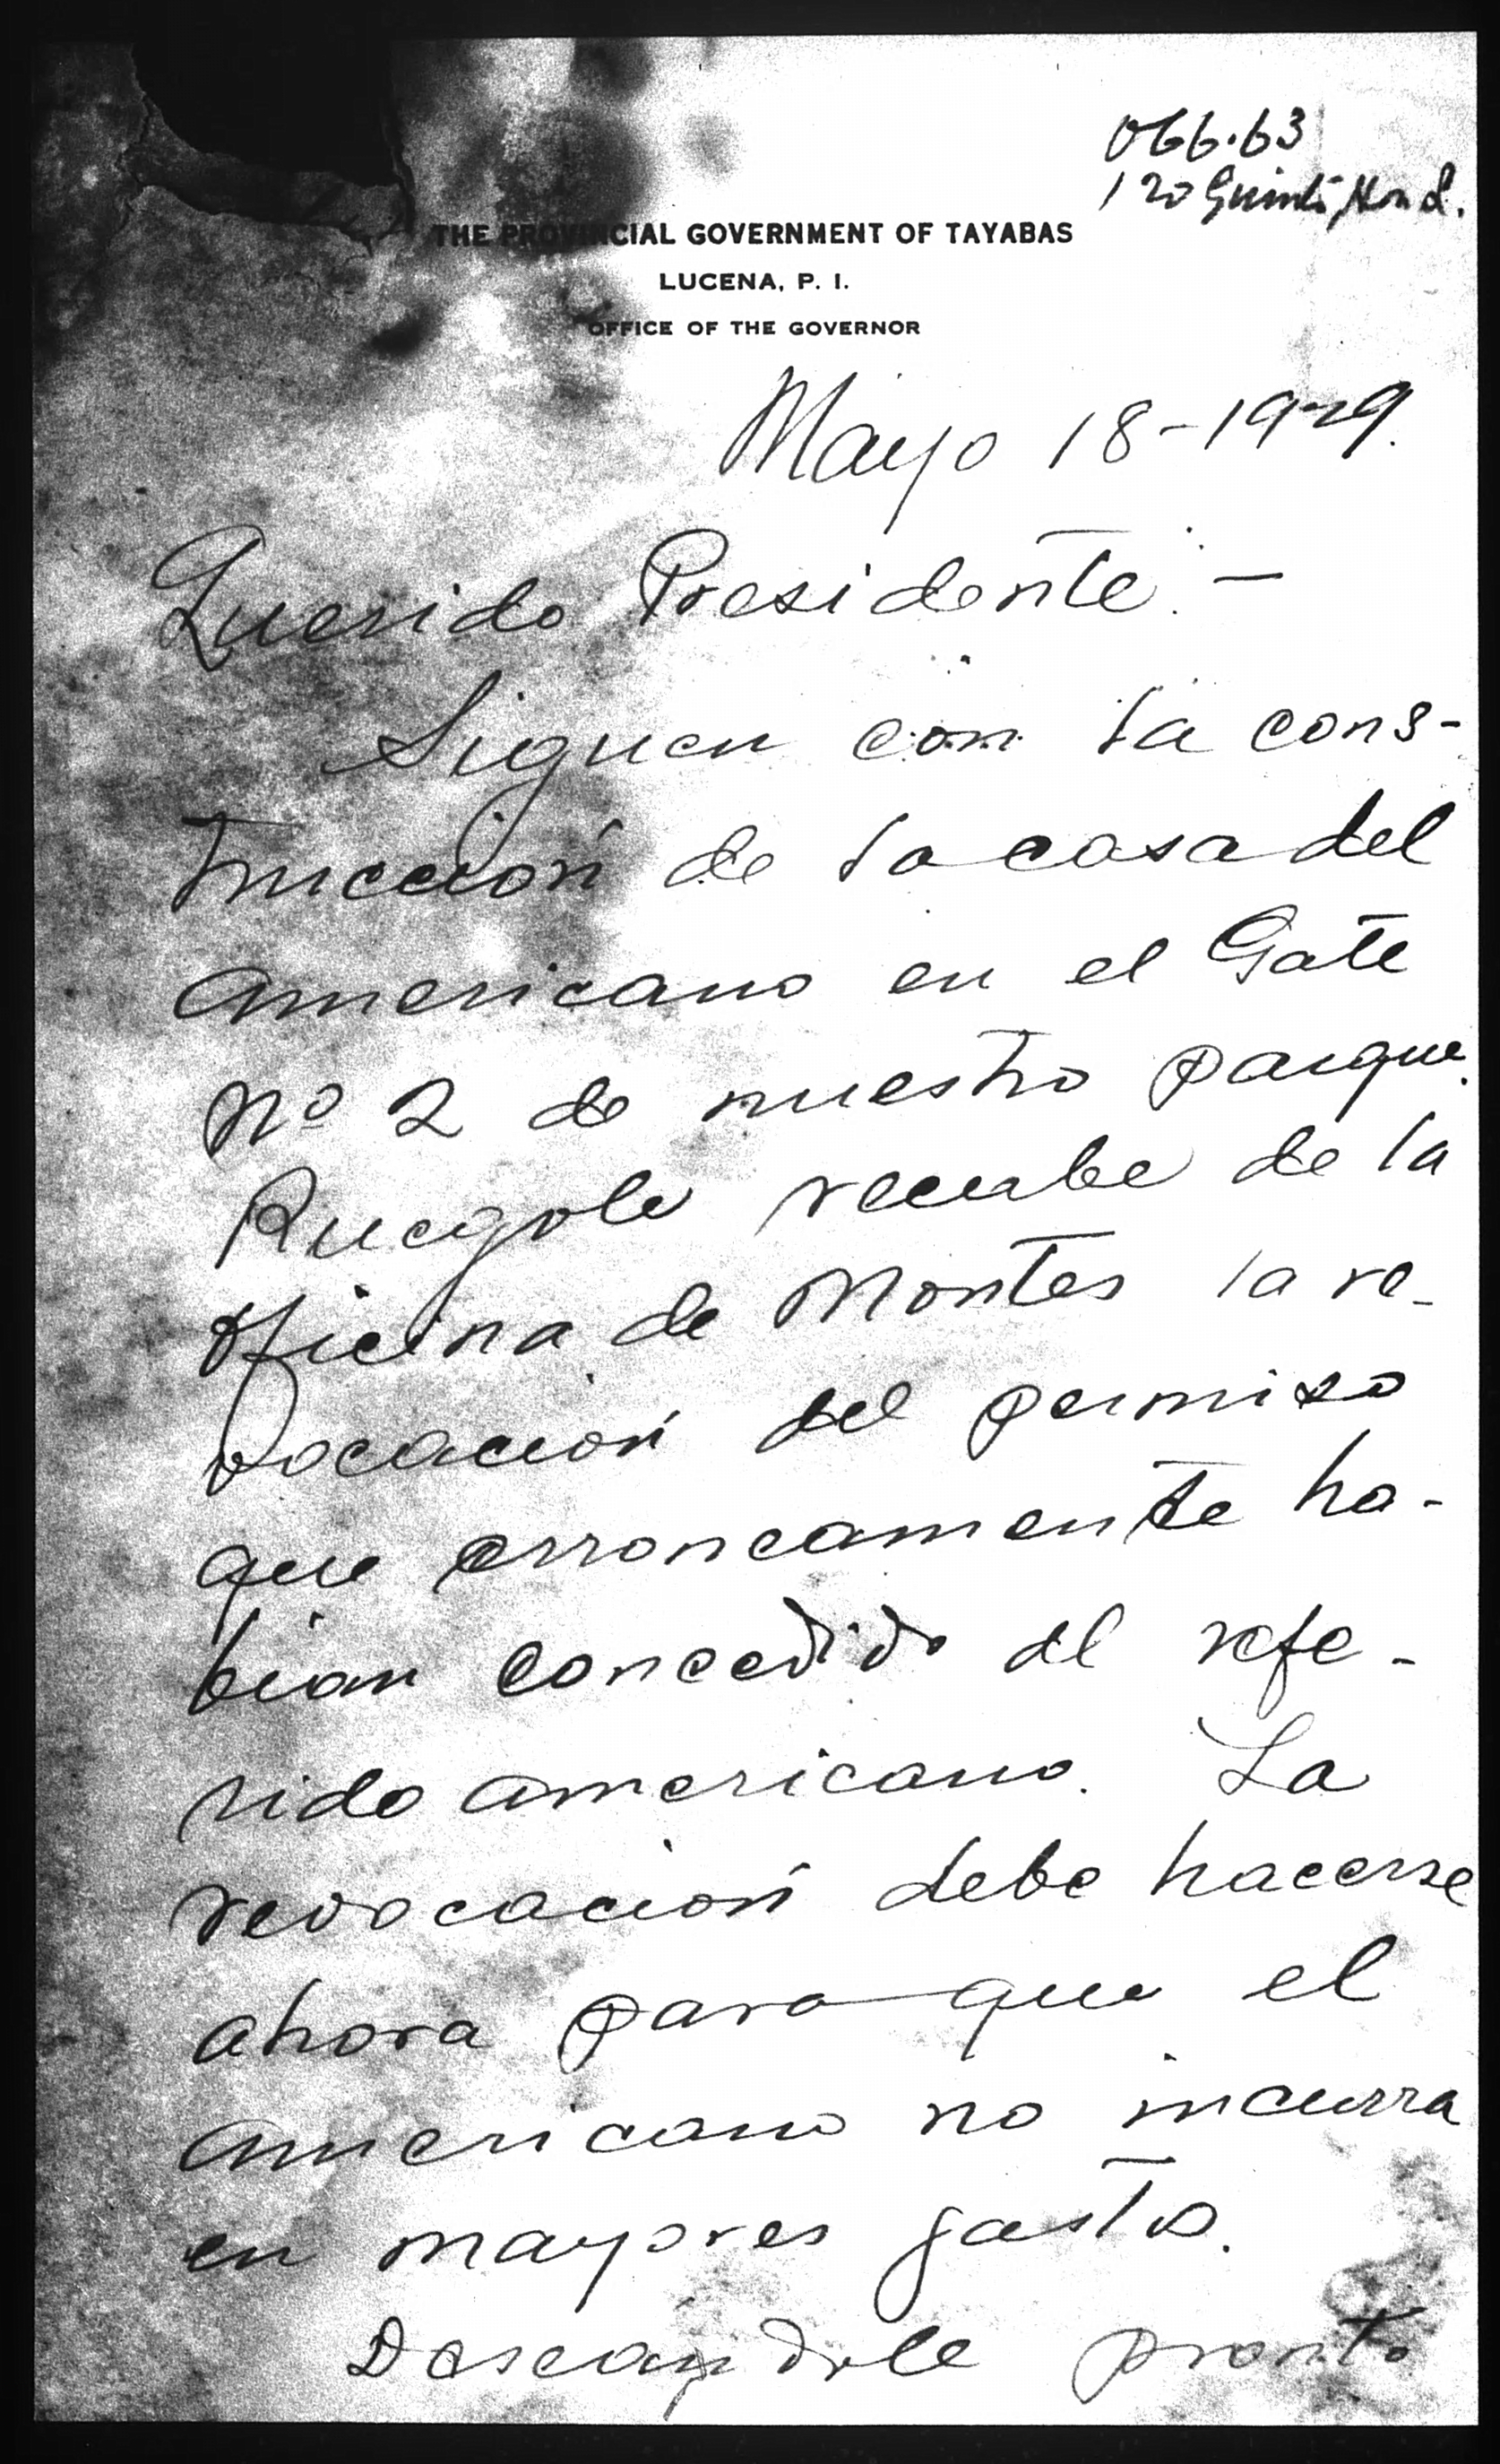 066.63
120
THE PROVINCIAL GOVERNMENT OF TAYABAS
LUCENA, P. I.
OFFICE OF THE GOVERNOR
Mayo 18-1929.
Querido Presidente: -
Siguen con la cons-
trucción de la casa del
americano en el Gate
Nº 2 de nuestro parque.
Ruegole recabe de la
oficina de Montes la re-
vocación del permiso
que erroneamente ha-
bian concedido al refe-
rido americano. La
revocación debe hacerse
ahora para que el
americano no incurra
en mayores gastos.
Deseandole pronto